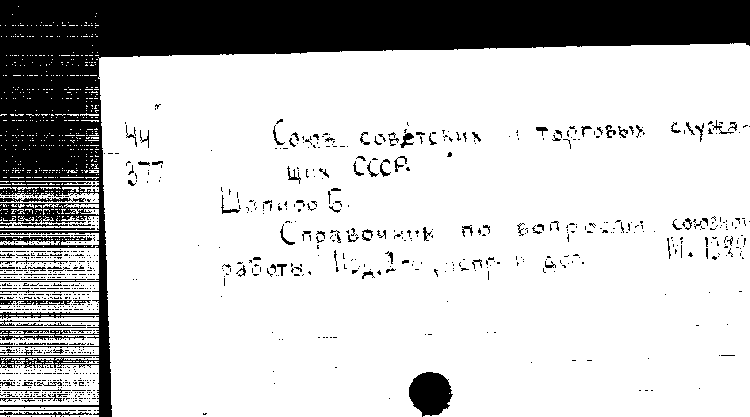 44 Союз советских и торговых служа-
377 щих СССР.
Шапиро Б.
Справочник по вопросам союзной
работы. Изд. 2-е, испр. и доп. М.